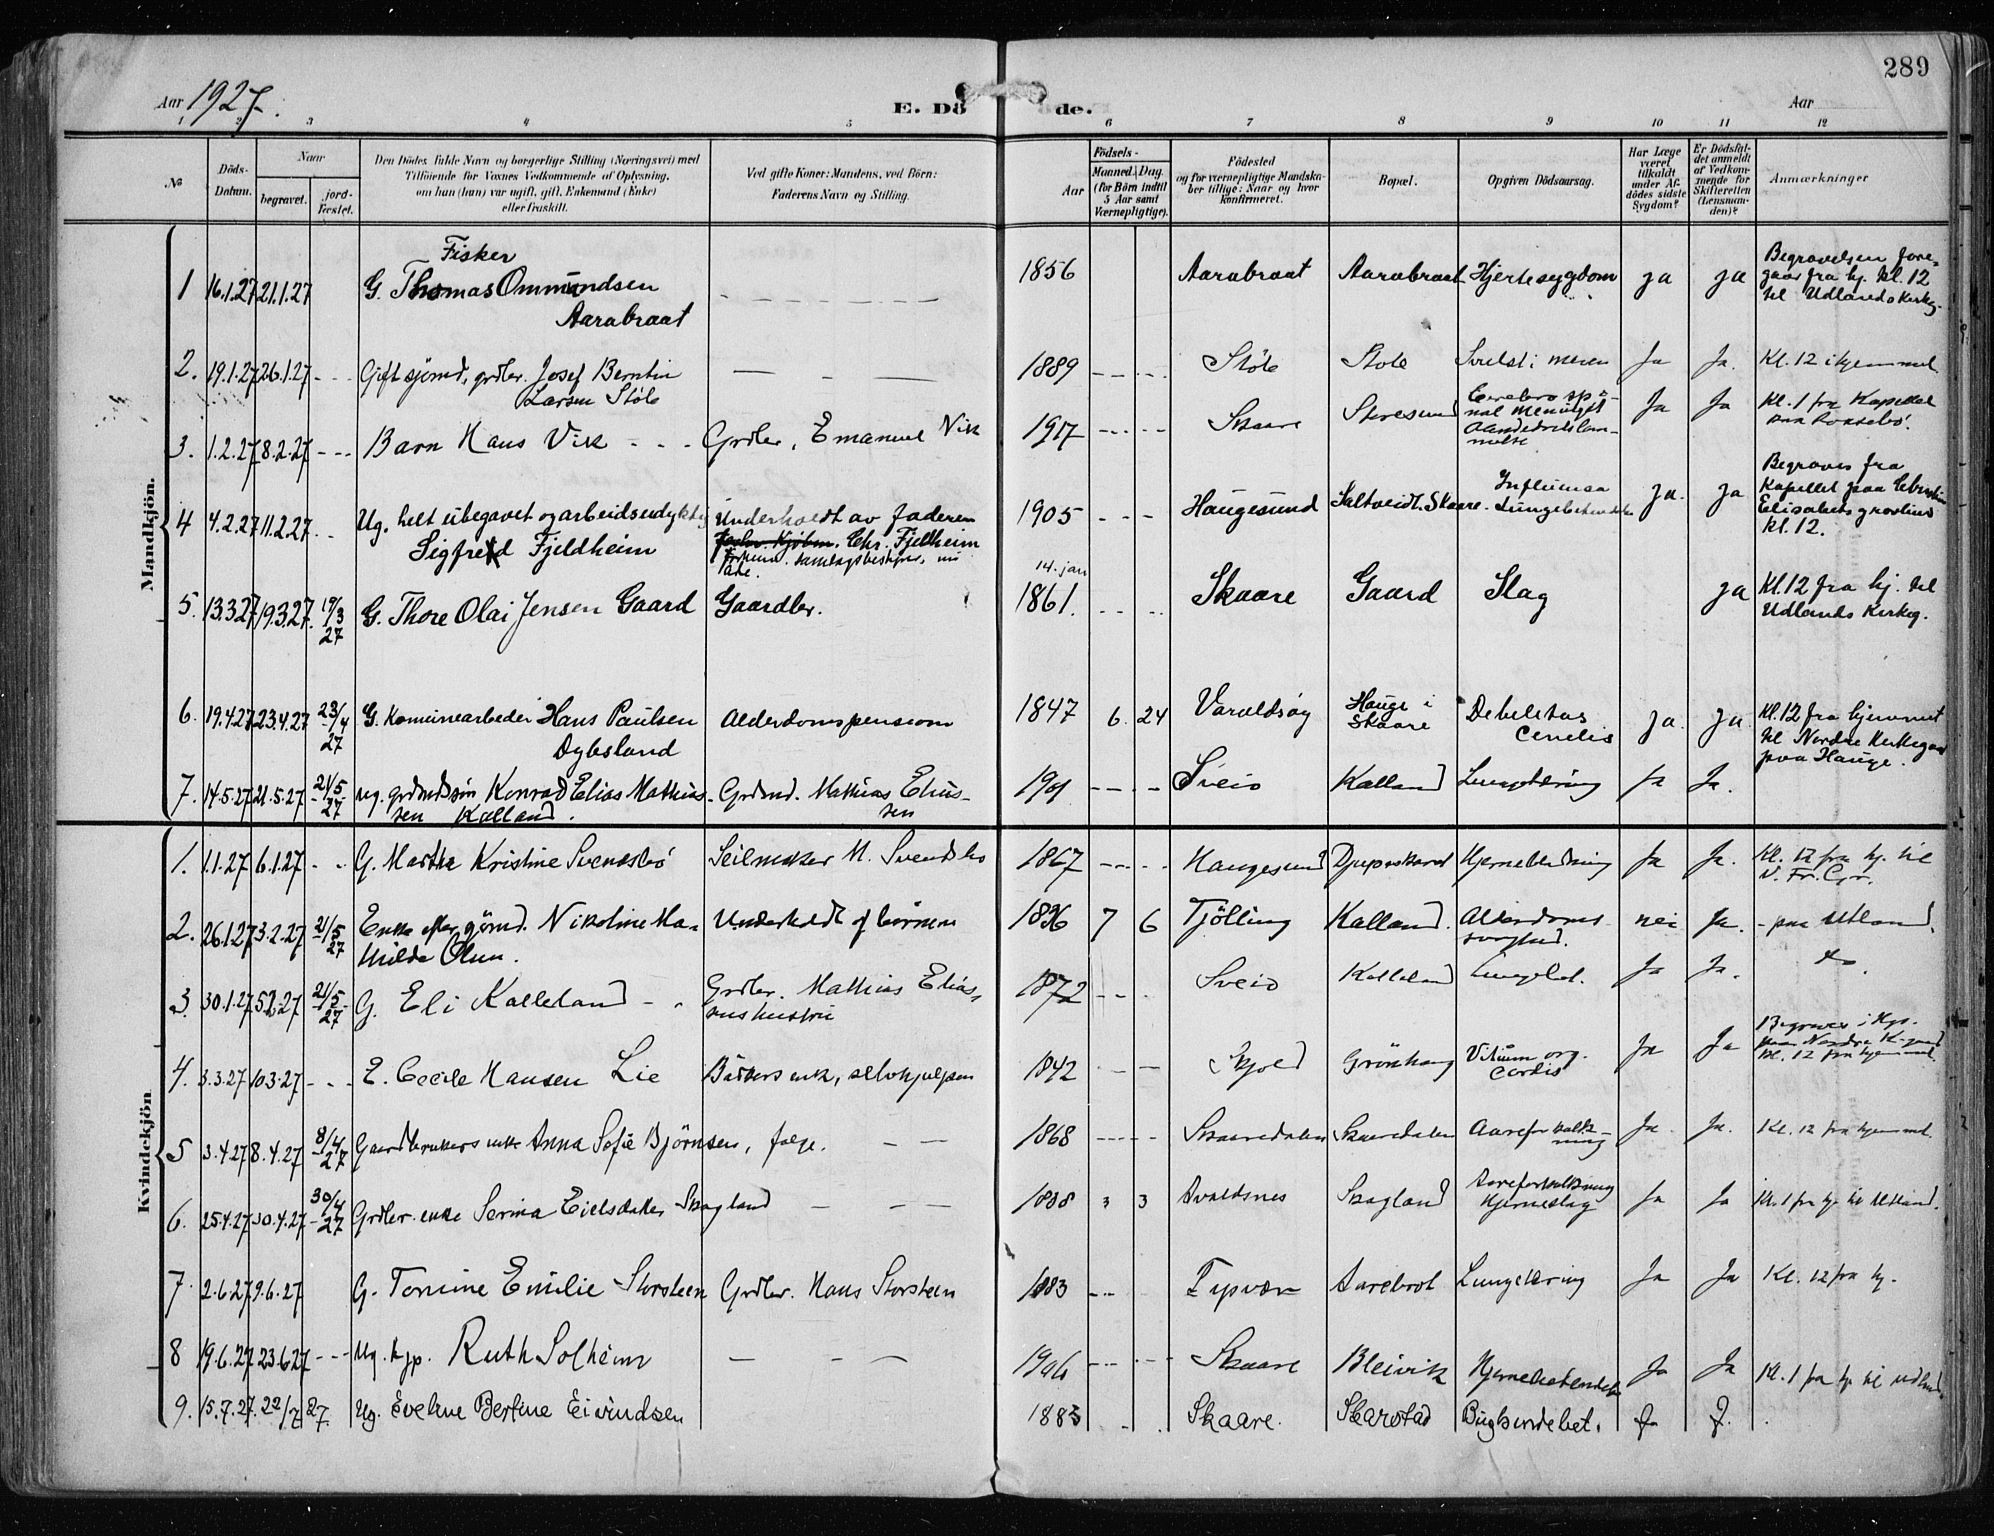 289
Aar 1927.
E. Döde.
Aar
1 2 3 4 5 6 7 8 9 10 11 12
No
Döds-Datum.
Naar
begravet.
jord-fæstet.
Den Dödes fulde Navn og borgerlige Stilling (Næringsvei) med
Tilföiende for Voxnes Vedkommende af Oplysning,
om han (hun) var ugift, gift, Enkemand (Enke)
eller fraskilt.
Ved gifte Koner: Mandens, ved Börn:
Faderens Navn og Stilling.
Födsels-
Aar
Maaned. Dag.
(for Börn indtil
5 Aar samt
Værnepligtige).
Födested
og for værnepligtige Mandska-
ber tillige: Naar og hvor
konfirmeret.
Bopæl.
Opgiven Dödsaarsag.
Har Læge
været
tilkaldt
under Af-
dödes sidste
Sygdom?
Er Dödsfal-
det anmeldt
af Vedkom-
mende for
Skifteretten
(Lensman-
den)?
Anmærkninger
Mandkjön.
1 16.1.27 21.1.27 G. Fisker Thomas Ommundsen Aarabraat 1856 Aarabraat Aarabraat Hjertesygdom ja ja Begravelsen fore-
gaar fra hj. kl. 12
til Udlands Kirkeg.
2. 19.1.27 26.1.27 Gift sjömd, grdbr. Josef Berntin
Larsen Stöle 1889 Stöle Stole Svulst i maven Ja Ja. Kl. 12 i hjemmet
3. 1.2.27 8.2.27 Barn Hans Vik Grdbr. Emanuel Vik 1917 Skaare Storesund Cerebro spi-
nal Meningit
Aandedrætslam-
melse Ja Ja Kl. 1 fra Kapellet
paa Rossebö.
4 4.2.27 11.2.27 Ug. helt ubegavet og arbeidsudyktig
Sigfred Fjeldheim Underholdt av faderen
Chr. Fjeldheim
samlagsbestyrer, nu 1905 Haugesund Saltveidt, Skaare Influensa
Lungebetendelse ja. ja Begraves fra
Kapellet paa
Elisabets gravlund
kl. 12.
5. 13.3.27 19.3.27 19/3 27 G. Thore Olai Jensen Gaard Gaardbr. 14. jan
1861. Skaare Gaard Slag ja Kl. 12 fra hj. til
Udlands Kirkeg.
6. 19.4.27 23.4.27 23/4 27 G. Komunearbeder Hans Paulsen
Dybsland Alderdomspension 1847 6. 24 Varaldsöy Hauge i
Skaare Debelitas
Cenelis ja. ja Kl. 12 fra hjemmet
til Nordre Kirkegaard
paa Hauge.
7. 14.5.27 21.5.27 21/5 27 ug. grdmdssön Konrad Elias Mathias-
sen Kalland. Grdmd. Mathias Elias-
sen 1901 Sveio Kalland Lungetæring Ja Ja.
Kvindekjön
1. 1.1.27 6.1.27 G. Marthe Kristine Svendsbö Seilmaker M. Svendsbö 1867 Haugesund Djupaskaret Hjerneblödning Ja Ja. Kl. 12 fra hj. til
V. Fr. Cgr.
2. 26.1.27 3.2.27 21/5 27 Enke efter sjömd. Nikoline Ma-
thilde Olsen. Underholdt af börnene 1836 7 6 Tjölling Kalland. Alderdoms-
svaghed. nei Ja. - paa Utland.
3. 30.1.27 5.2.27 21/5 27 G. Eli Kalleland Grdbr. Mathias Elias-
sens hustru 1872 Sveio Kalleland Lungebet. Ja Ja. do.
4. 3.3.27 10.3.27 E. Cecile Hansen Lie Bakkers enke, selvhjulpen 1842 Skjold Grönhaug Vitium org.
cordis Ja Ja Begraves i Hgs.
paa Nordre K-gaard
Kl. 12 fra hjemmet
5 3.4.27 8.4.27 8/4 27 Gaardbrukers enke Anna Sofie Björnsen, folge. 1868 Skaaredalen Skaaredalen Aareforkalk-
ning Ja. Ja. Kl. 12 fra hjemmet.
6. 25.4.27 30.4.27 30/4 27 Grdbr. enke Serina Eielsdatter Skogland 1838 3 3 Avaldsnes Skogland Aareforkalkning
Hjerneslag Ja Ja Kl. 1 fra hj. til Utland.
7. 2.6.27 9.6.27 G. Tomine Emilie Storsteen Grdbr. Hans Storsteen 1883 Tysvær Aarebrot Lungetæring Ja Ja Kl. 12 fra hj.
8 19.6.27 23.6.27 Ug. hjp. Ruth Solheim 1906 Skaare Bleivik Hjernebetendelse Ja Ja Kl. 1 fra hj. til udland.
9. 15.7.27. 22/7 27 Ug. Eveline Bertine Eivindsen 1883 Skaare. Skarstad Bughindebet. J. J.